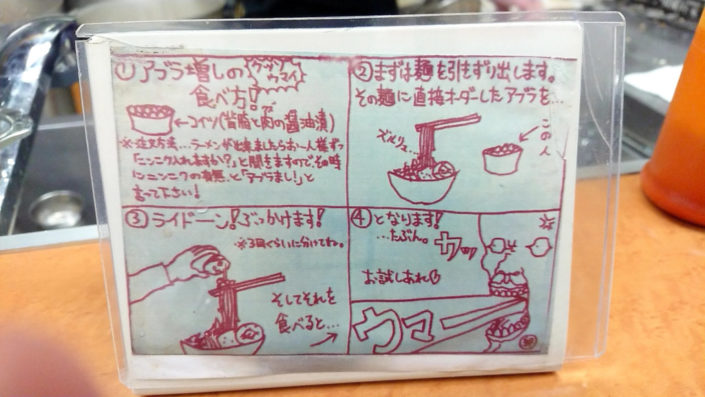 ①アブラ増しの
グッツ
ウマイ
食べ方!
←コイツ(背脂と肉の醤油漬)
※注文方法…ラーメンが出来ましたらお一人様ずつ
「ニンニク入れますか?」と聞きますので、その時
にニンニクの有無と「アブラまし!」と
言って下さい!
②まずは麺を引きずり出します。
その麺に直接オーダーしたアブラを…
ズルリ…
この人
③ライドーン!ぶっかけます!
※3回ぐらいに分けてね。
そしてそれを
食べると…
④となります!
…たぶん。
カッ
お試しあれ
ウマー